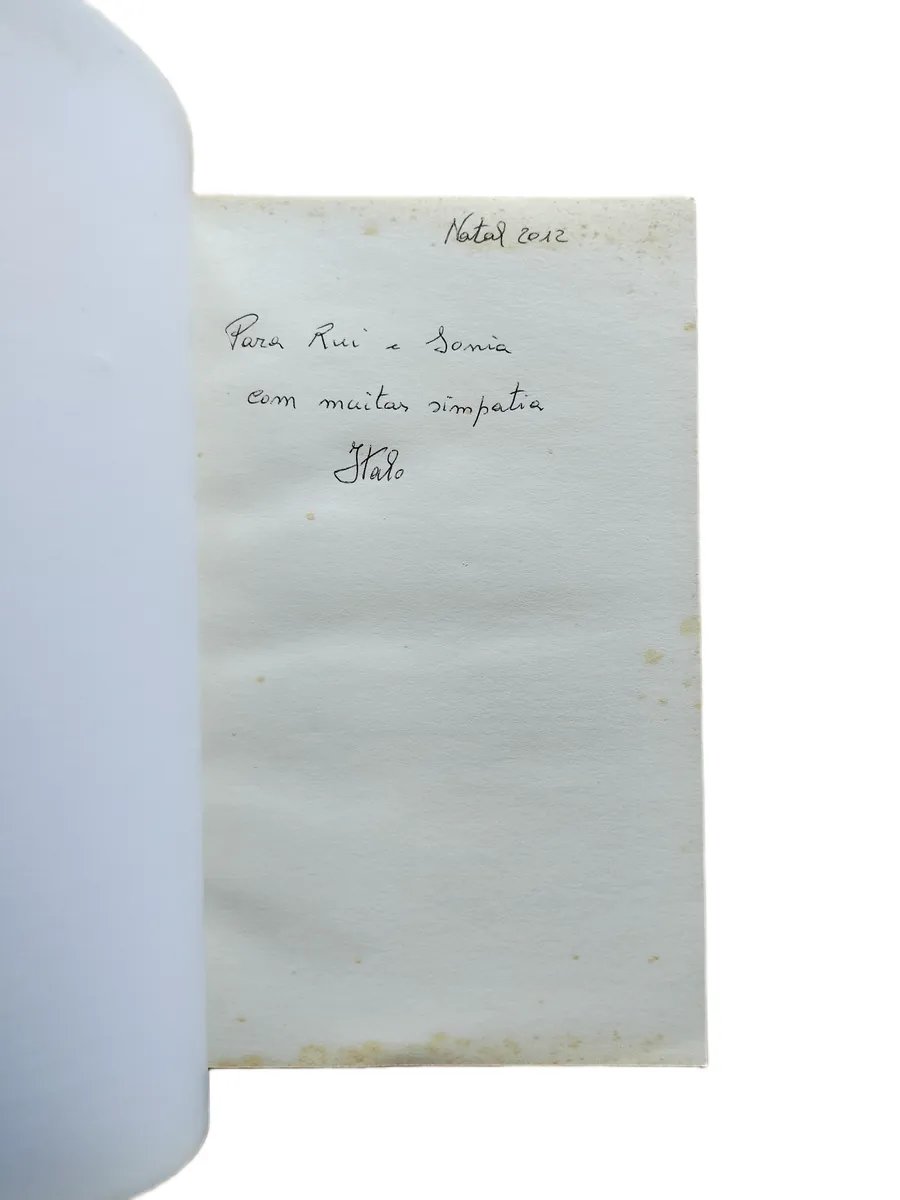 Natal 2012
Para Rui e Sonia
com muitas simpatia
Italo